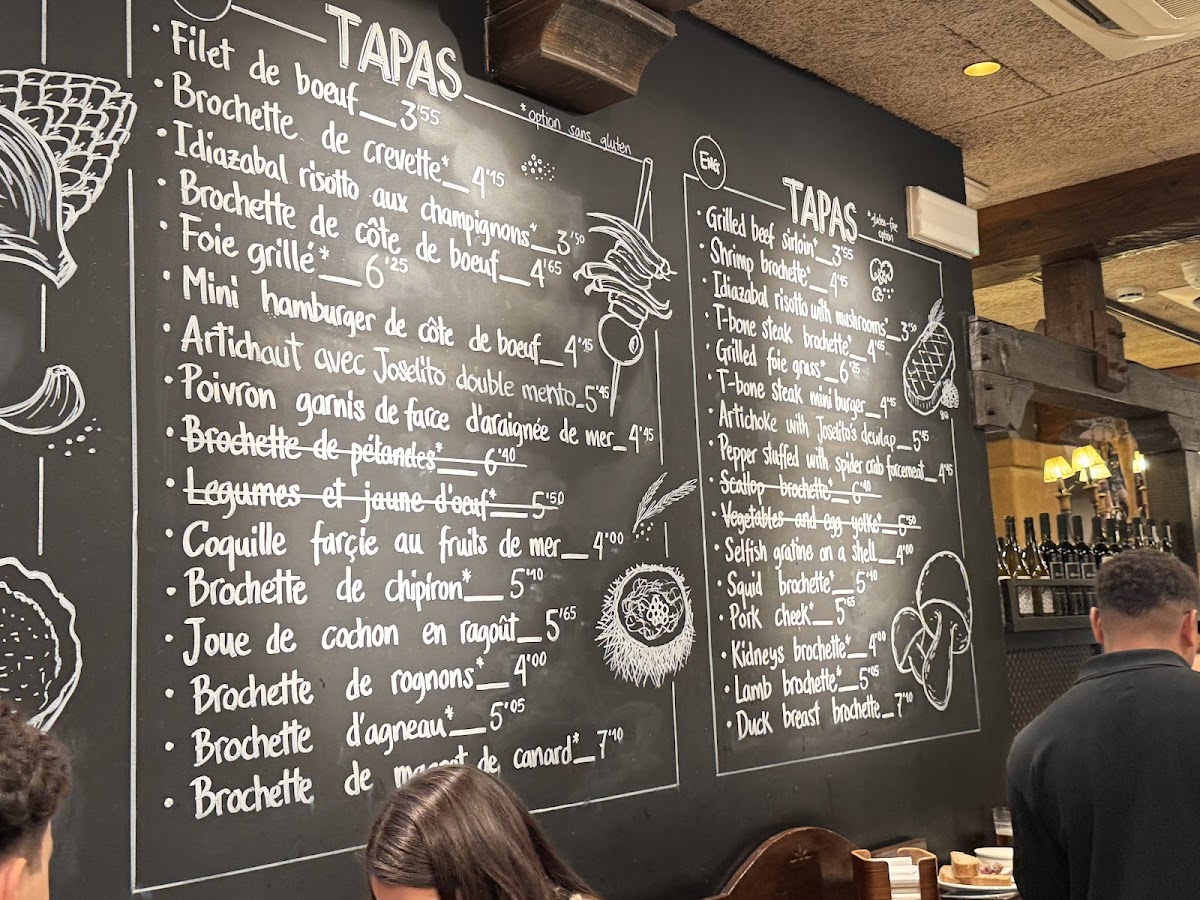 TAPAS
*option sans gluten
• Filet de boeuf__3'55
• Brochette de crevette*__4'15
• Idiazabal risotto aux champignons*__3'50
• Brochette de côte de boeuf__4'65
• Foie grillé*__6'25
• Mini hamburger de côte de boeuf__4'45
• Artichaut avec Joselito double mento_5'45
• Poivron garnis de farce d'araignée de mer_4'45
• Brochette de pétancles*__6'40
• Legumes et jaune d'oeuf*__5'50
• Coquille farçie au fruits de mer__4'00
• Brochette de chipiron*__5'10
• Joue de cochon en ragoût_5'65
• Brochette de rognons*__4'00
• Brochette d'agneau*__5'05
• Brochette de magret de canard*__7'10
TAPAS
*gluten-free option
• Grilled beef sirloin*__3'55
• Shrimp brochette*__4'15
• Idiazabal risotto with mushrooms*__3'50
• T-bone steak brochette*__4'65
• Grilled foie grass*__6'25
• T-bone steak mini burger__4'45
• Artichoke with Joselito's dewlap__5'45
• Pepper stuffed with spider crab forcement__4'45
• Scallop brochette*__6'40
• Vegetables and egg yolke*__5'50
• Selfish gratine on a shell__4'00
• Squid brochette*__5'10
• Pork cheek*__5'65
• Kidneys brochette*__4'00
• Lamb brochette*__5'05
• Duck breast brochette_7'10